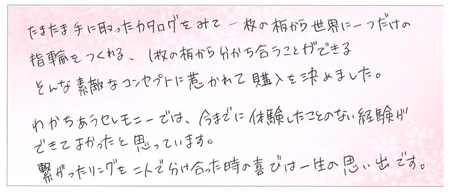 たまたま手に取ったカタログをみて 一枚の柄から世界に一つだけの
指輪をつくれる、1枚の柄から分かち合うことができる
そんな素敵なコンセプトに惹かれて購入を決めました。
わかちあうセレモニーでは、今までに体験したことのない経験が
できてよかったと思っています。
繋がったリングを二人で分け合った時の喜びは一生の思い出です。